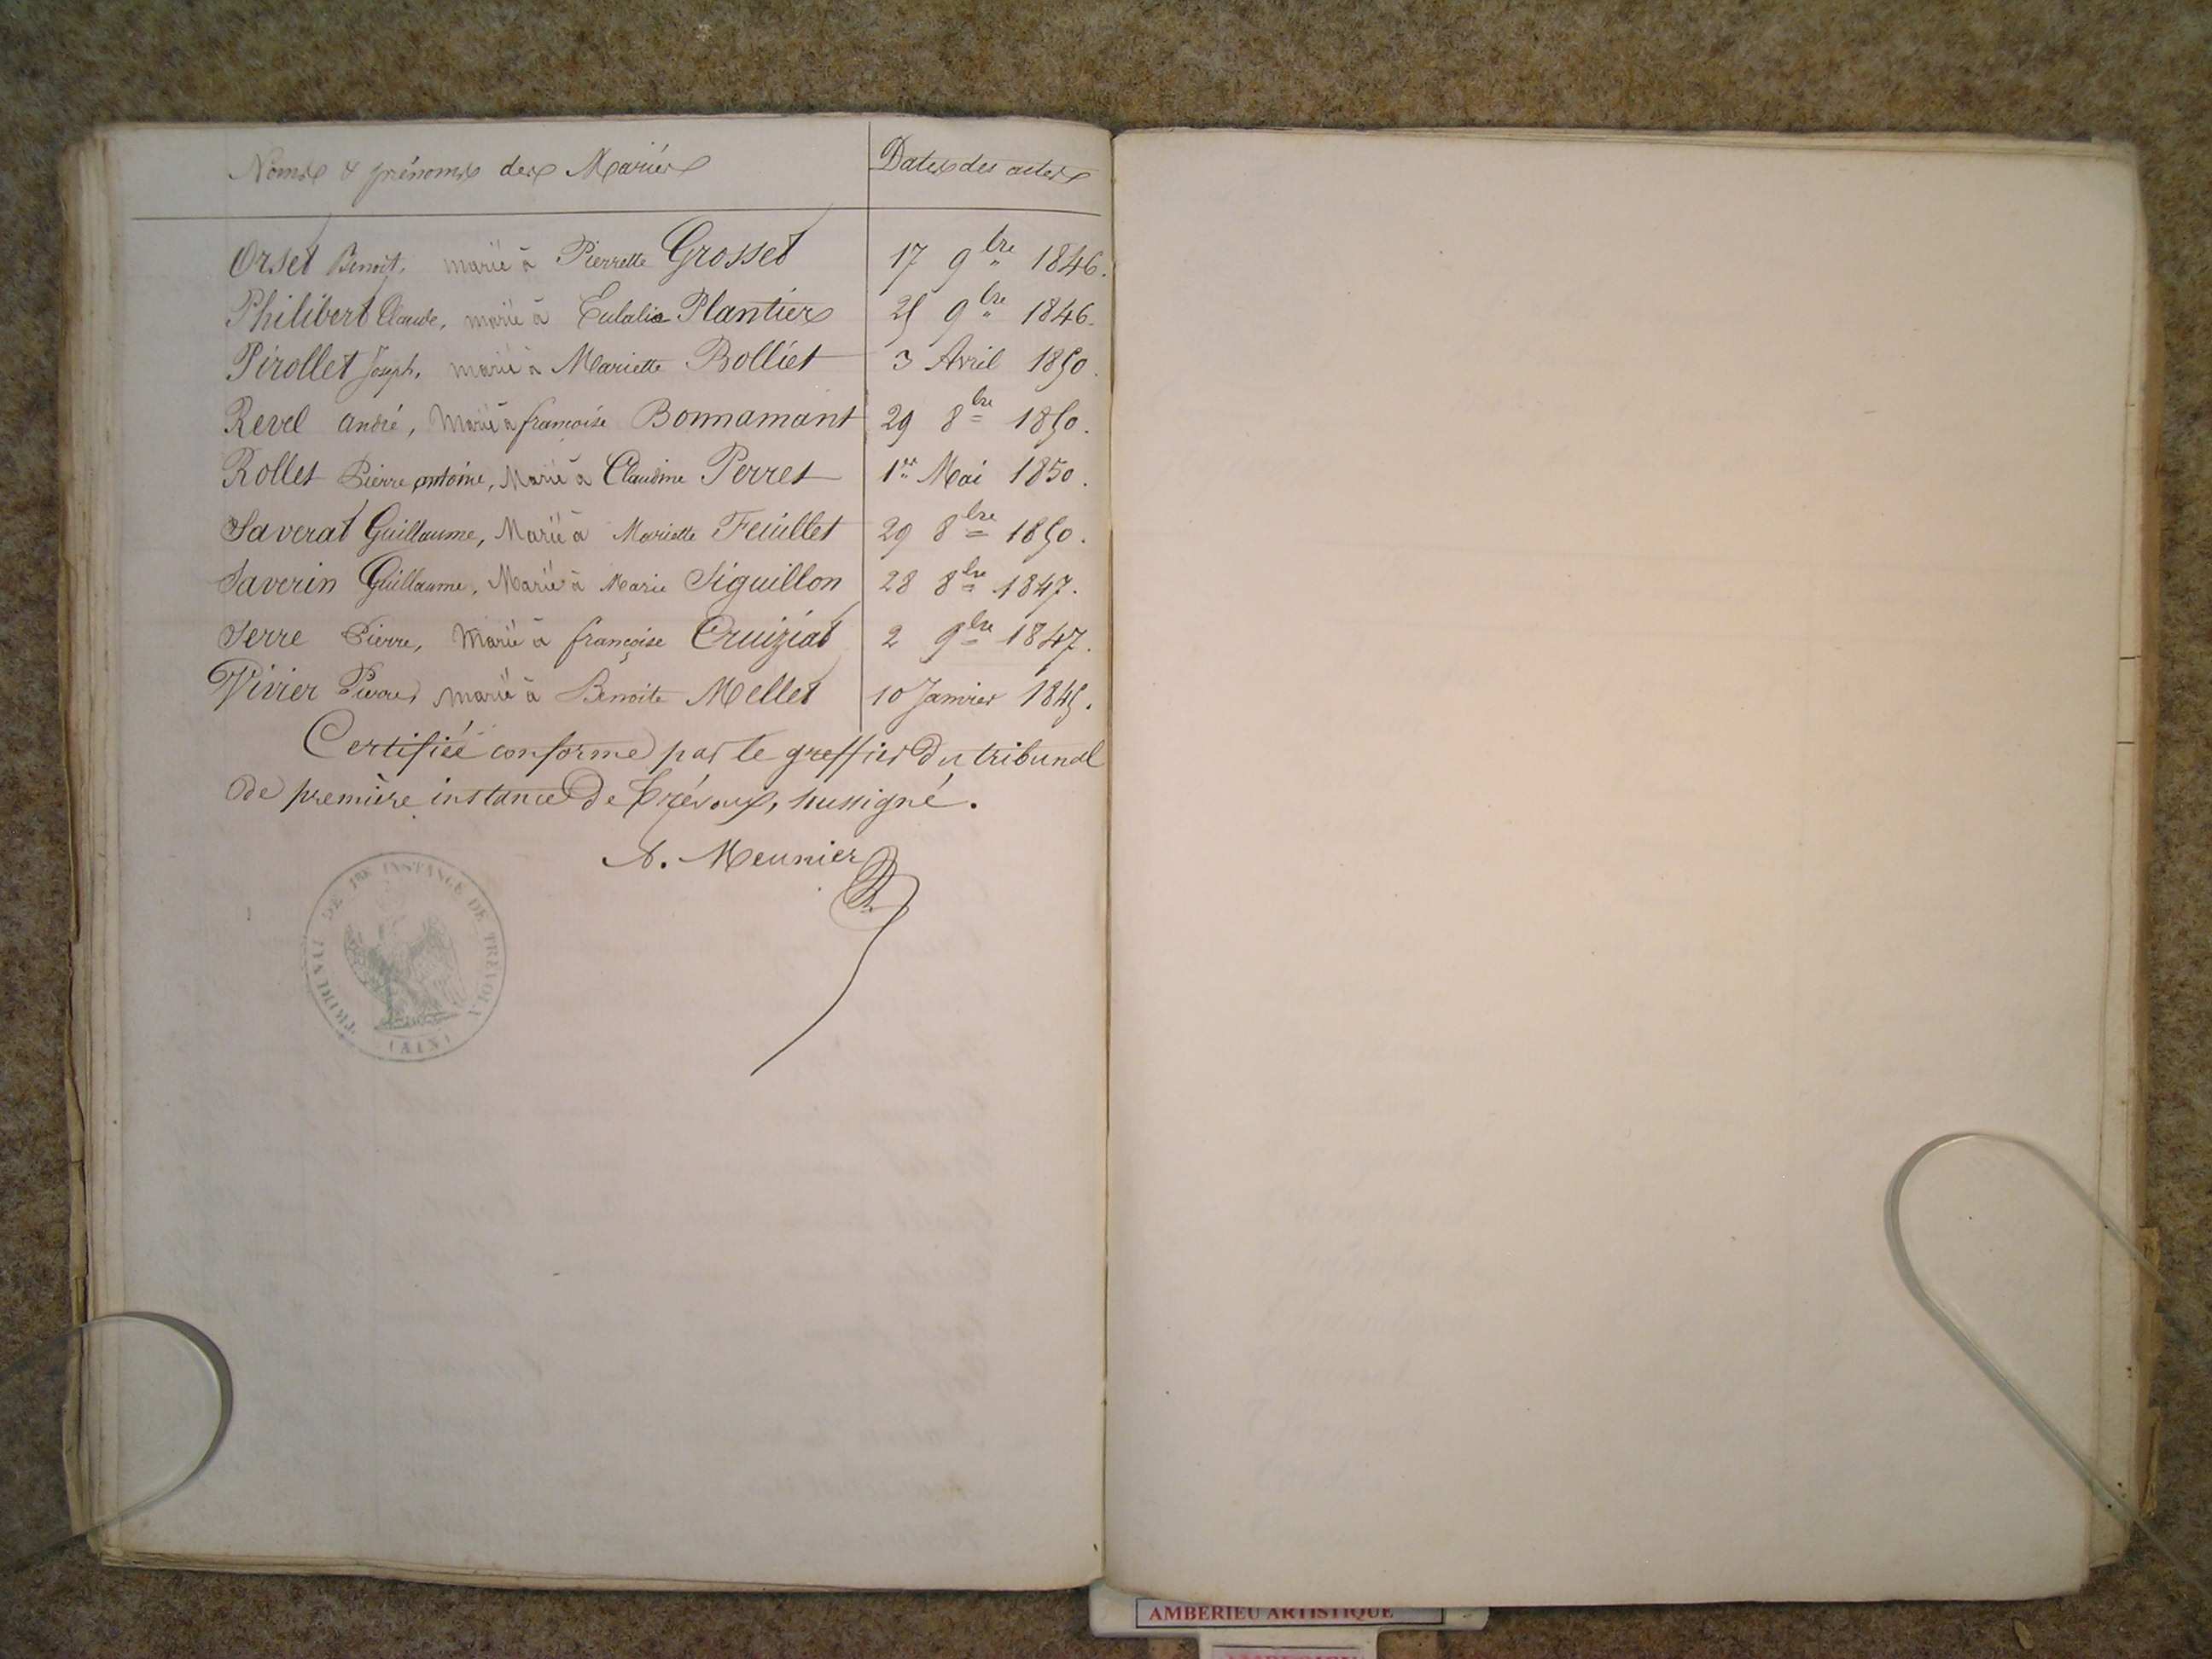 Noms & prénoms des Mariés Dates des actes
Orset Benoit, marié à Pierrette Grosset 17 9bre 1846.
Philibert Claude, marié à Eulalie Plantier 25 9bre 1846.
Pirollet Joseph, marié à Mariette Bolliet 3 Avril 1850.
Revel andré, Marié à françoise Bonnamant 29 8bre 1850.
Rollet Pierre antoine, Marié à Claudine Perret 1er Mai 1850.
Saverat Guillaume, Marié à Mariette Feuillet 29 8bre 1850.
Saverin Guillaume, Marié à Marie Siguillon 28 8bre 1847.
Serre Pierre, Marié à françoise Cruiziat 2 9bre 1847.
Vivier marié à Benoite Mellet 10 Janvier 1845.
Certifiée conforme par le greffier du tribunal
de première instance de Trévoux, sussigné.
A. Meunier
TRIBUNAL DE 1RE INSTANCE DE TRÉVOUX
(AIN)
AMBERIEU ARTISTIQUE
AMBERIEU